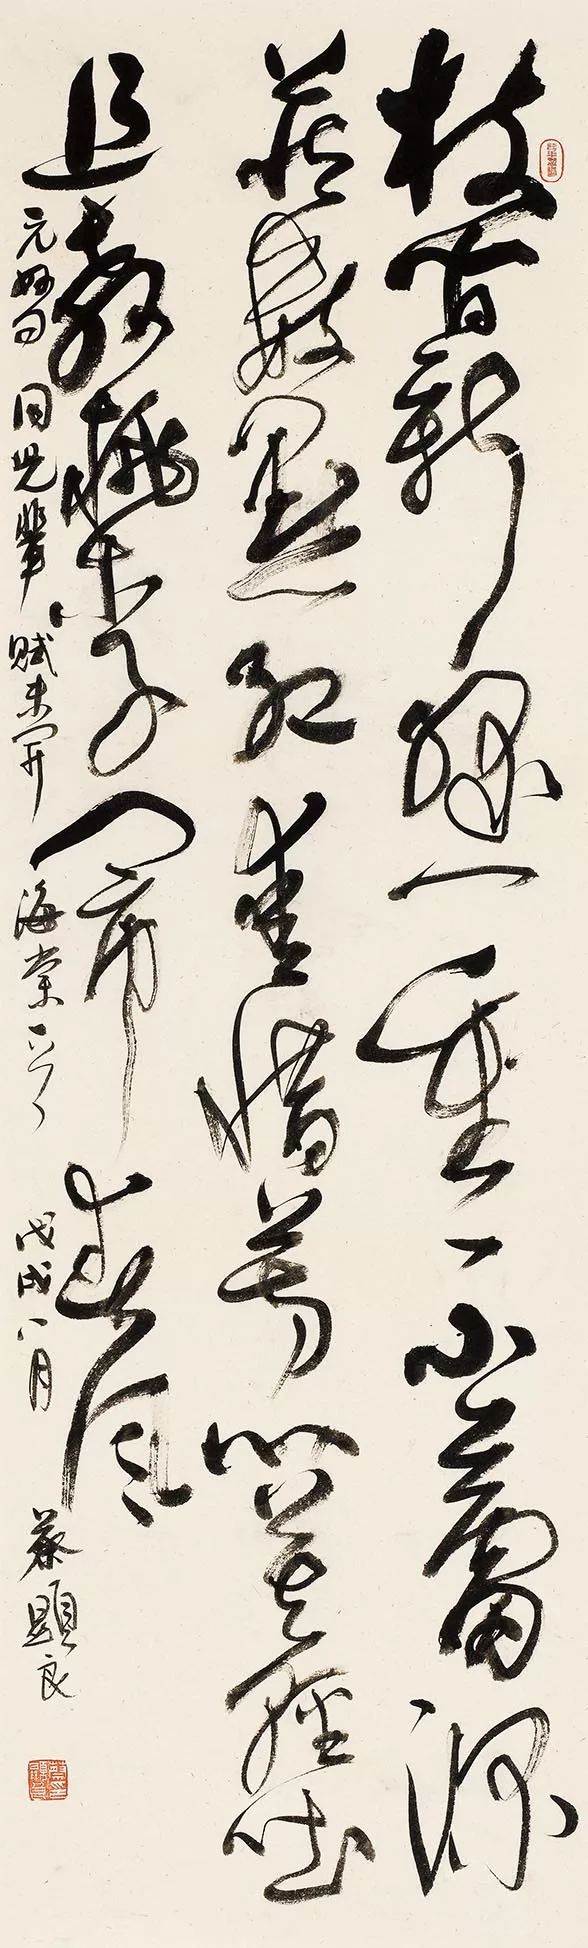 枝間新綠一重重小蕾深
藏數點紅愛惜芳心莫輕吐
且教桃李鬧春風
元好問同兒輩賦未開海棠 戊戌八月 蔡顯良